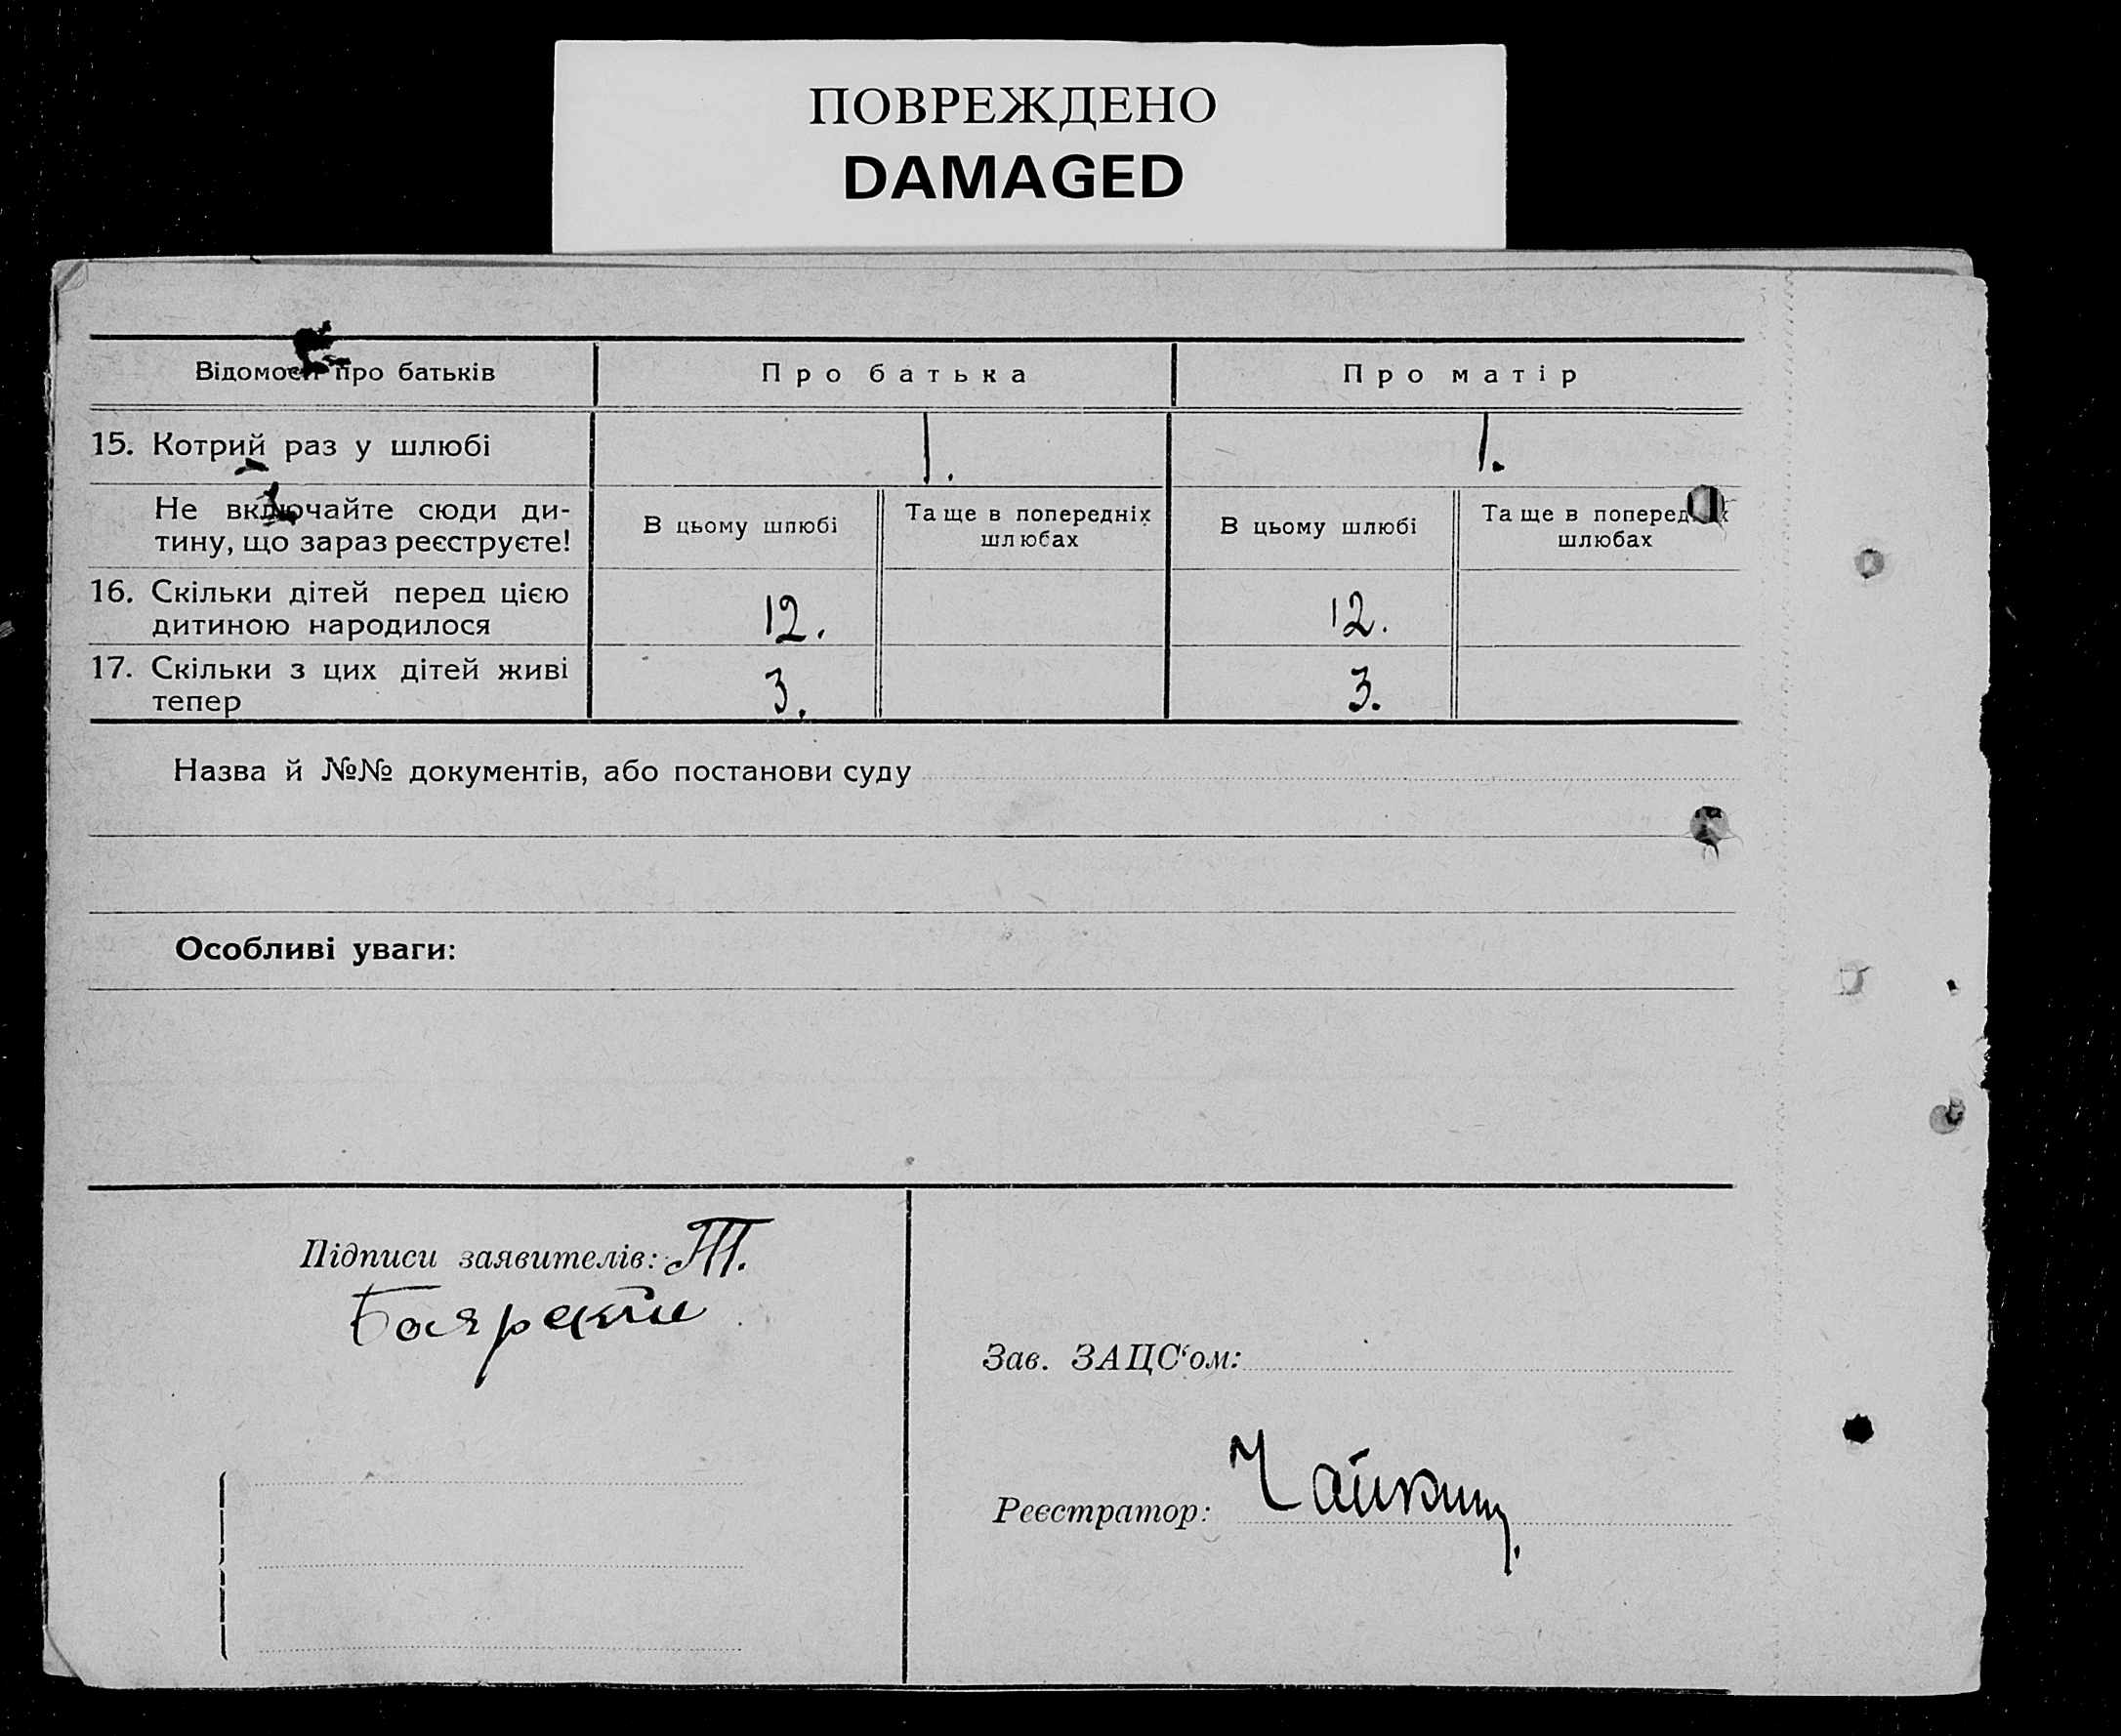 ПОВРЕЖДЕНО
DAMAGED
Відомості про батьків
Про батька
Про матір
15. Котрий раз у шлюбі
1.
1.
Не включайте сюди ди-
тину, що зараз реєструєте!
В цьому шлюбі
Та ще в попередніх
шлюбах
В цьому шлюбі
Та ще в попередніх
шлюбах
16. Скільки дітей перед цією
дитиною народилося
12.
12.
17. Скільки з цих дітей живі
тепер
3.
3.
Назва й №№ документів, або постанови суду
Особливі уваги:
Підписи заявителів: Т.
Зав. ЗАЦС‘ом:
Реєстратор: